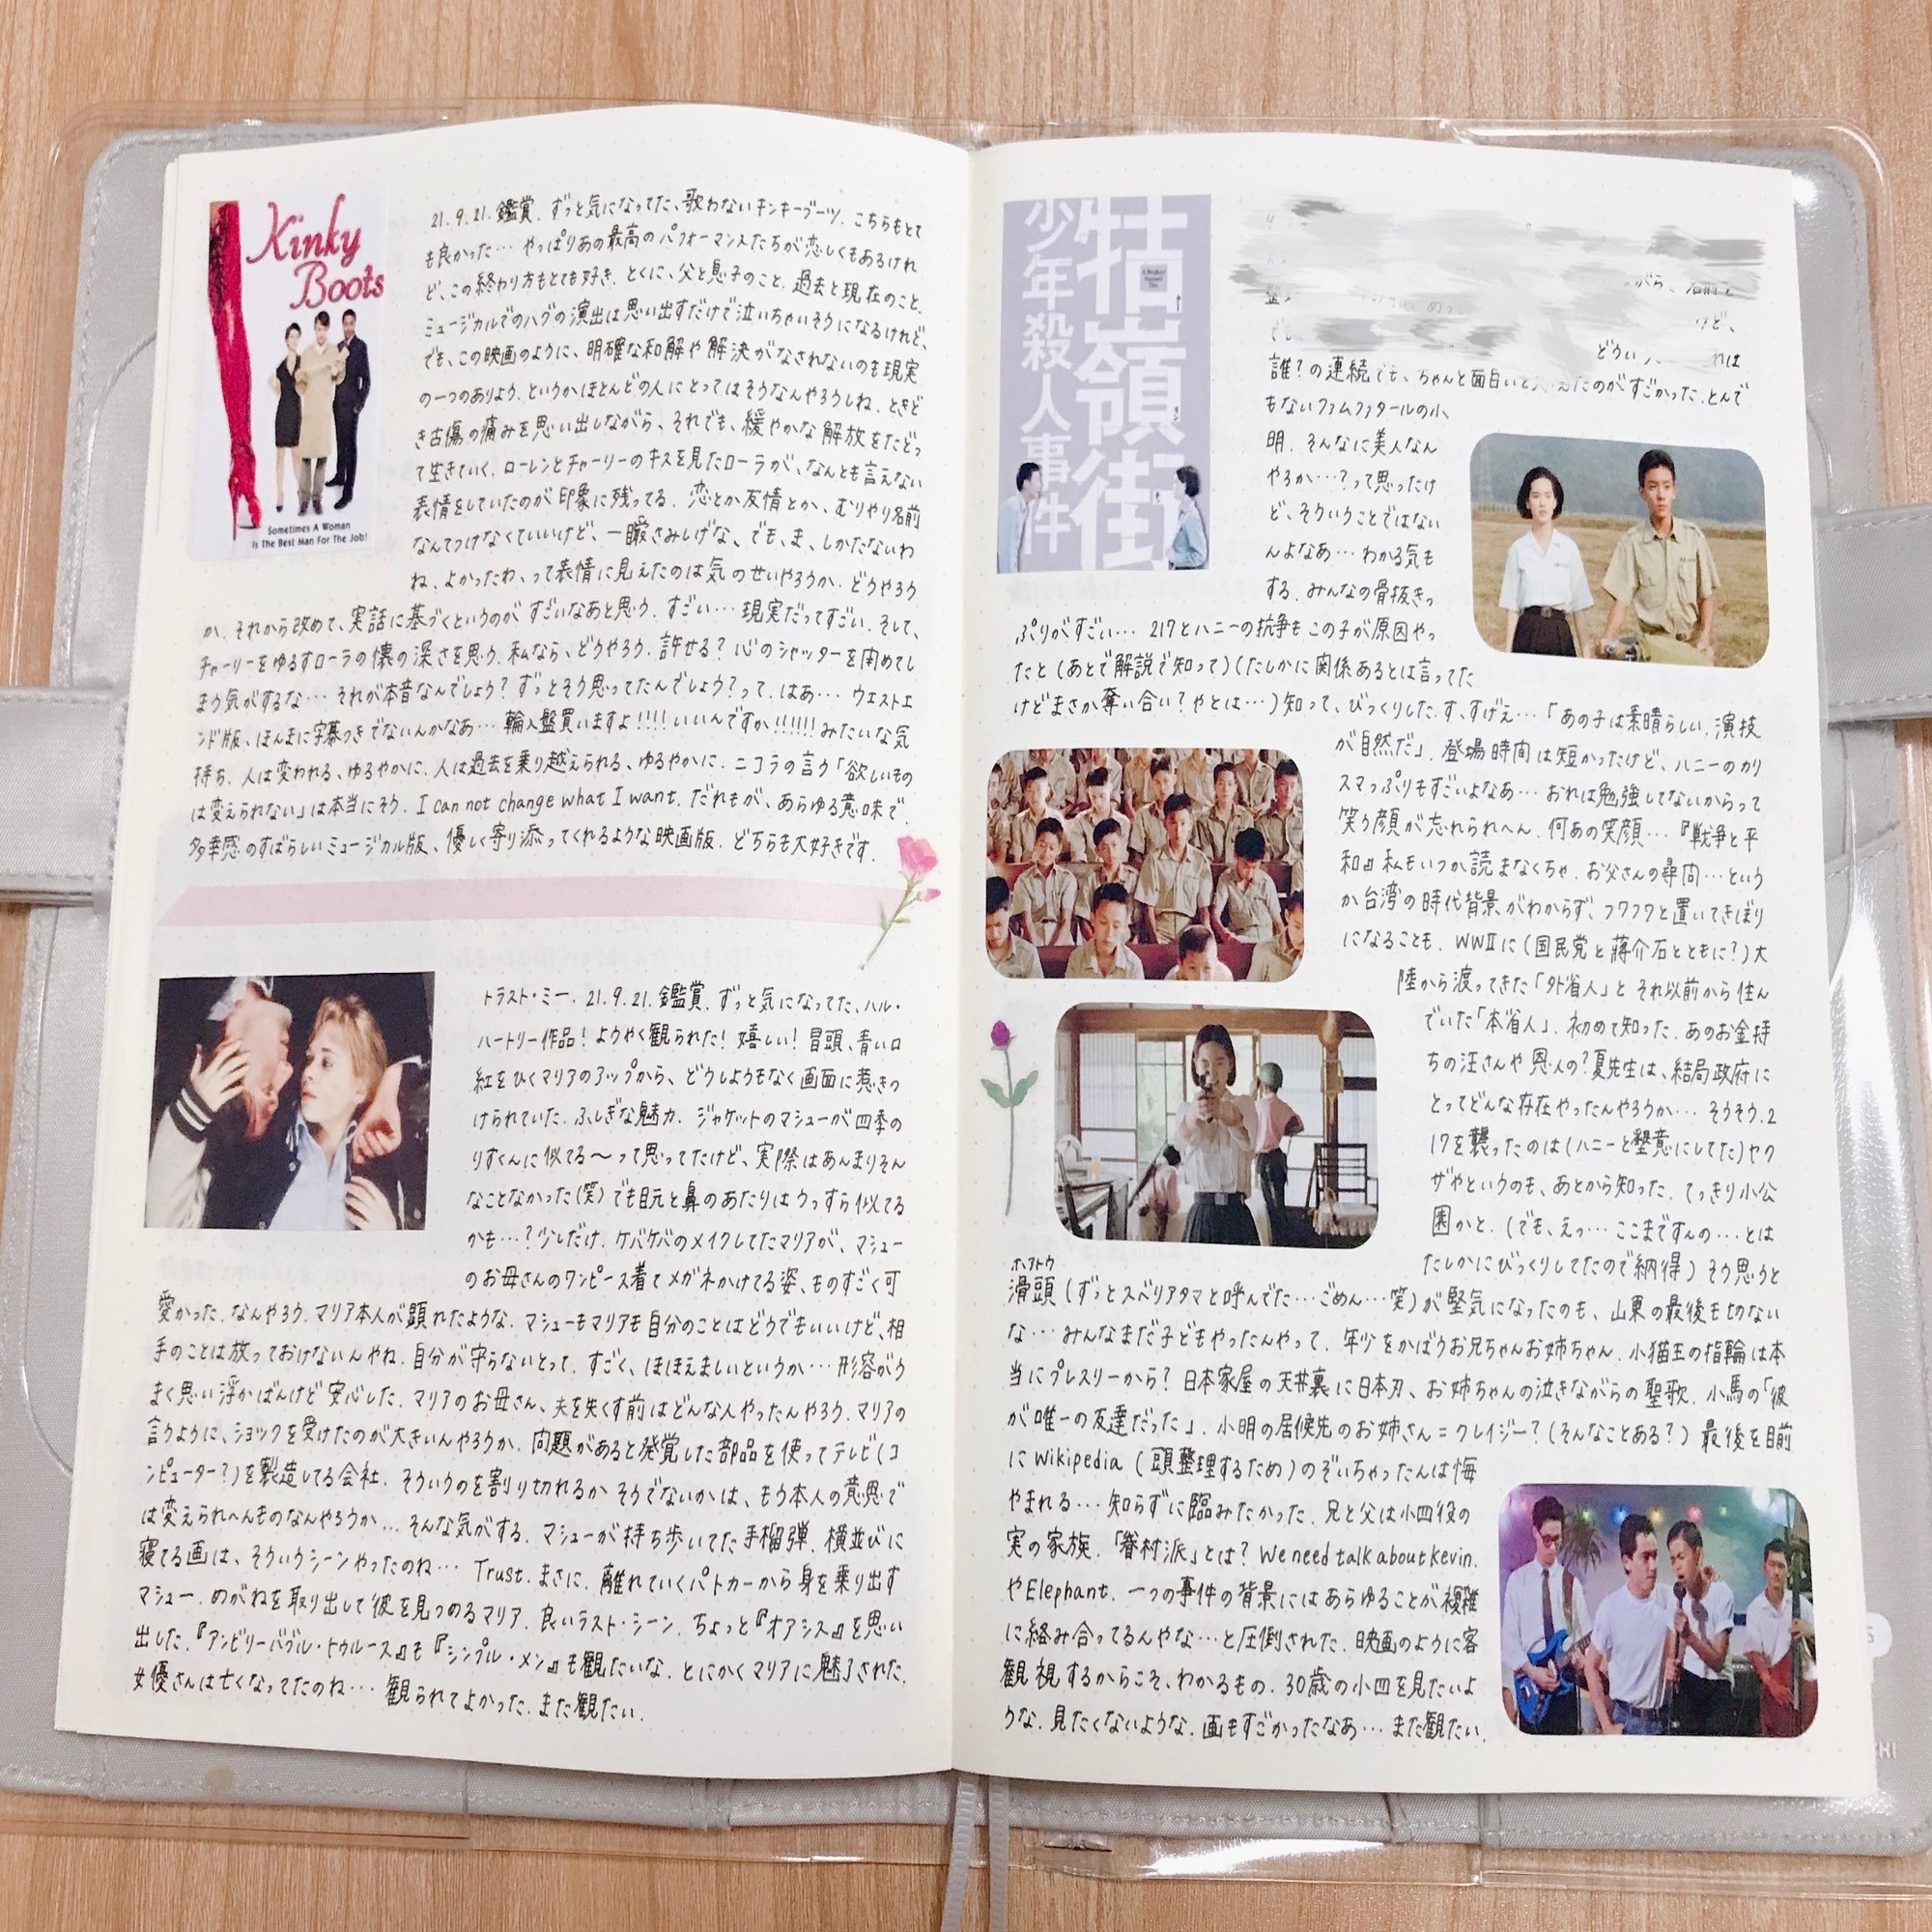 Kinky
Boots
Sometimes A Woman
Is The Best Man For The Job!
21.9.21.鑑賞.ずっと気になってた、歌わないキンキーブーツ.こちらもとて
も良かった…やっぱりあの最高のパフォーマンスたちが恋しくもあるけれ
ど、この終わり方もとても好き.とくに、父と息子のこと.過去と現在のこと.
ミュージカルでのハグの演出は思い出すだけで泣いちゃいそうになるけれど、
でも、この映画のように、明確な和解や解決がなされないのも現実
の一つのありよう.というかほとんどの人にとってはそうなんやろうしね.ときど
き古傷の痛みを思い出しながら、それでも、緩やかな解放をたどっ
て生きていく.ローレンとチャーリーのキスを見たローラが、なんとも言えない
表情をしていたのが印象に残ってる.恋とか友情とか、むりやり名前
なんてつけなくていいけど、一瞬さみしげな、でも、ま、しかたないわ
ね、よかったわ、って表情に見えたのは気のせいやろうか.どうやろう
か.それから改めて、実話に基づくというのがすごいなあと思う.すごい…現実だってすごい.そして、
チャーリーをゆるすローラの懐の深さを思う.私なら、どうやろう.許せる?心のシャッターを閉めてし
まう気がするな…それが本音なんでしょう?ずっとそう思ってたんでしょう?って.はあ…ウエストエ
ンド版、ほんまに字幕つきでないんかなあ…輸入盤買いますよ!!!!いいんですか!!!!!!みたいな気
持ち.人は変われる、ゆるやかに.人は過去を乗り越えられる、ゆるやかに.ニコラの言う「欲しいもの
は変えられない」は本当にそう.I can not change what I want.だれもが、あらゆる意味で.
多幸感のすばらしいミュージカル版、優しく寄り添ってくれるような映画版.どちらも大好きです.
トラスト・ミー.21.9.21.鑑賞.ずっと気になってた、ハル・
ハートリー作品!ようやく観られた!嬉しい!冒頭、青い口
紅をひくマリアのアップから、どうしようもなく画面に惹きつ
けられていた.ふしぎな魅力.ジャケットのマシューが四季の
りすくんに似てる〜って思ってたけど、実際はあんまりそん
なことなかった(笑)でも目元と鼻のあたりはうっすら似てる
かも…?少しだけ.ケバケバのメイクしてたマリアが、マシュー
のお母さんのワンピース着てメガネかけてる姿、ものすごく可
愛かった.なんやろう.マリア本人が顕れたような.マシューもマリアも自分のことはどうでもいいけど、相
手のことは放っておけないんやね.自分が守らないとって.すごく、ほほえましいというか…形容がう
まく思い浮かばんけど安心した.マリアのお母さん、夫を失くす前はどんな人やったんやろう.マリアの
言うように、ショックを受けたのが大きいんやろうか.問題があると発覚した部品を使ってテレビ(コ
ンピューター?)を製造してる会社.そういうのを割り切れるかそうでないかは、もう本人の意思で
は変えられへんものなんやろうか…そんな気がする.マシューが持ち歩いてた手榴弾.横並びに
寝てる画は、そういうシーンやったのね…Trust.まさに.離れていくパトカーから身を乗り出す
マシュー.めがねを取り出して彼を見つめるマリア.良いラスト・シーン.ちょっと『オアシス』を思い
出した.『アンビリーバブル・トゥルース』も『シンプル・メン』も観たいな.とにかくマリアに魅了された.
女優さんは亡くなってたのね…観られてよかった.また観たい.
牯嶺街
少年殺人事件
がら、名前と
けど、
でも
どういう
れは
誰?の連続でも、ちゃんと面白いと えたのがすごかった.とんで
もないファムファタールの小
明.そんなに美人なん
やろか…?って思ったけ
ど、そういうことではない
んよなあ…わかる気も
する.みんなの骨抜きっ
ぷりがすごい…217とハニーの抗争もこの子が原因やっ
たと(あとで解説で知って)(たしかに関係あるとは言ってた
けどまさか奪い合い?やとは…)知って、びっくりした.す、すげえ…「あの子は素晴らしい.演技
が自然だ」.登場時間は短かったけど、ハニーのカリ
スマっぷりもすごいよなあ…おれは勉強してないからって
笑う顔が忘れられへん.何あの笑顔…『戦争と平
和』私もいつか読まなくちゃ.お父さんの尋問…という
か台湾の時代背景がわからず、フワフワと置いてきぼり
になることも.WWⅡに(国民党と蒋介石とともに?)大
陸から渡ってきた「外省人」とそれ以前から住ん
でいた「本省人」.初めて知った.あのお金持
ちの汪さんや恩人の?夏先生は、結局政府に
とってどんな存在やったんやろうか…そうそう.2
17を襲ったのは(ハニーと懇意にしてた)ヤク
ザやというのも、あとから知った.てっきり小公
園かと.(でも、えっ…ここまですんの…とは
たしかにびっくりしてたので納得)そう思うと
ホアトウ
滑頭(ずっとスベリアタマと呼んでた…ごめん…笑)が堅気になったのも、山東の最後も切ない
な…みんなまだ子どもやったんやって.年少をかばうお兄ちゃんお姉ちゃん.小猫王の指輪は本
当にプレスリーから?日本家屋の天井裏に日本刀、お姉ちゃんの泣きながらの聖歌.小馬の「彼
が唯一の友達だった」.小明の居候先のお姉さん=クレイジー?(そんなことある?)最後を目前
にWikipedia(頭整理するため)のぞいちゃったんは悔
やまれる…知らずに臨みたかった.兄と父は小四役の
実の家族.「眷村派」とは?We need talk about Kevin.
やElephant.一つの事件の背景にはあらゆることが複雑
に絡み合ってるんやな…と圧倒された.映画のように客
観視するからこそ、わかるもの.30歳の小四を見たいよ
うな.見たくないような.画もすごかったなあ…また観たい.